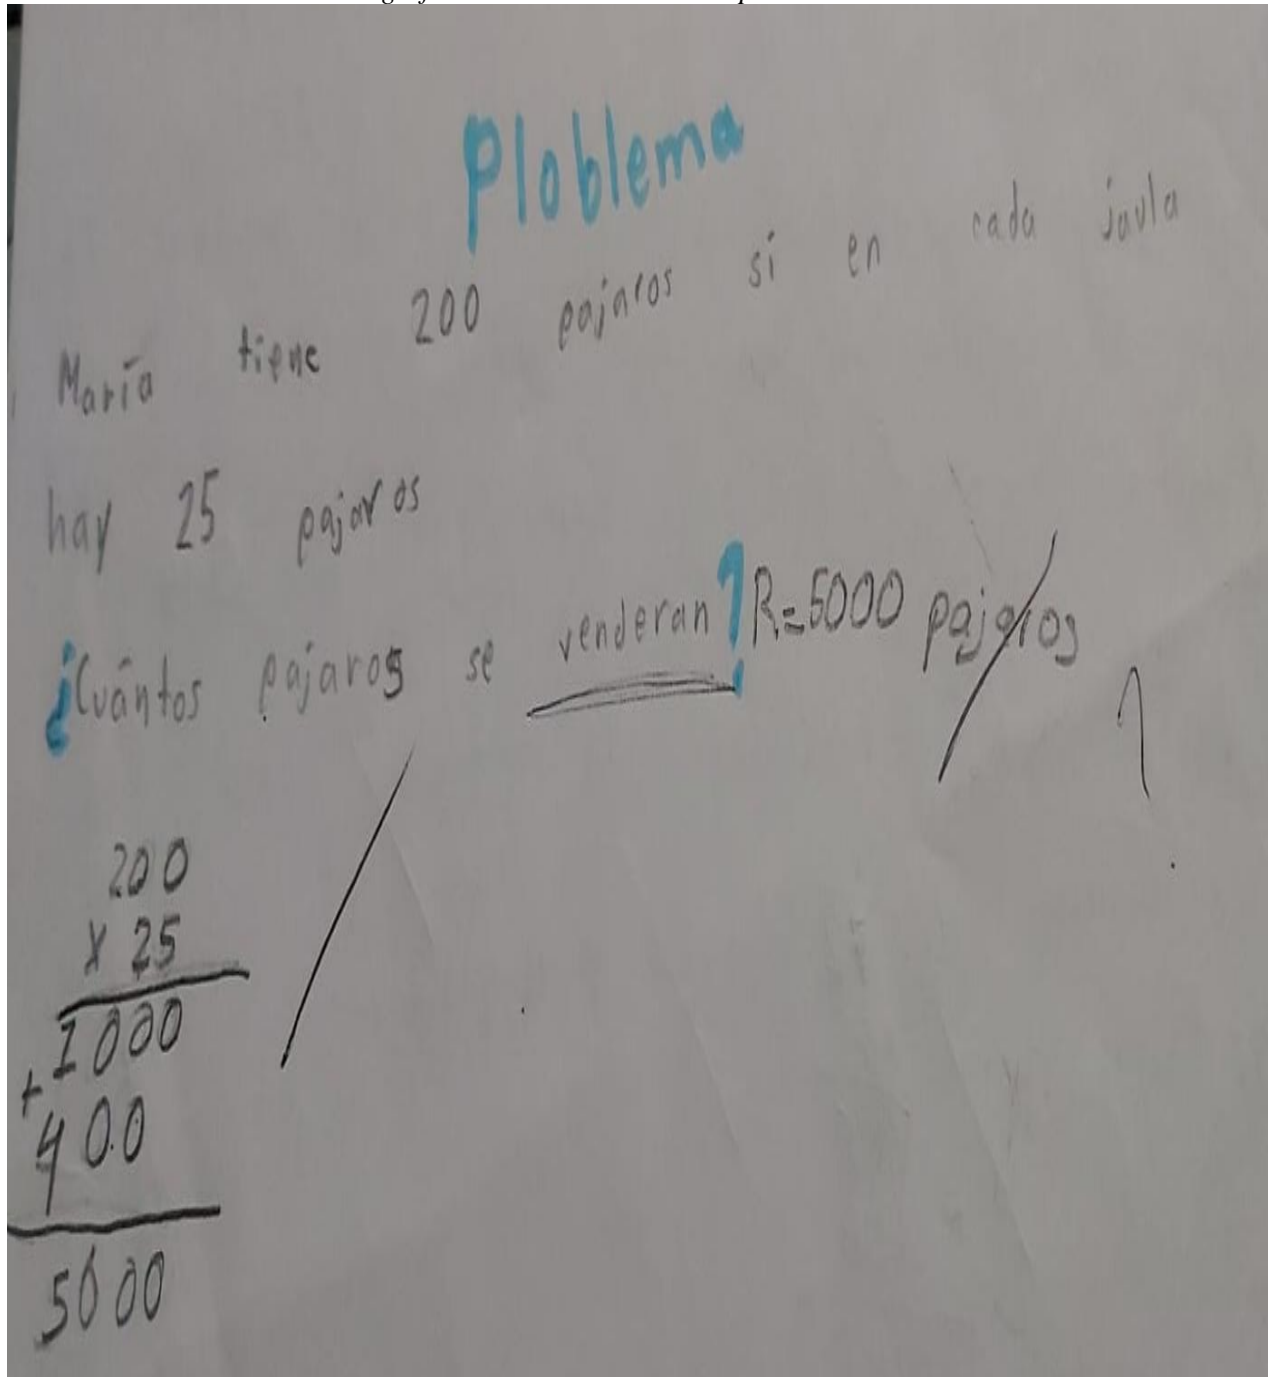 Ploblema
María tiene 200 pajaros si en cada javla
hay 25 pajaros
¿Cuántos pajaros se venderan? R=5000 pajaros
?
200
x 25
1000
+
400
5000